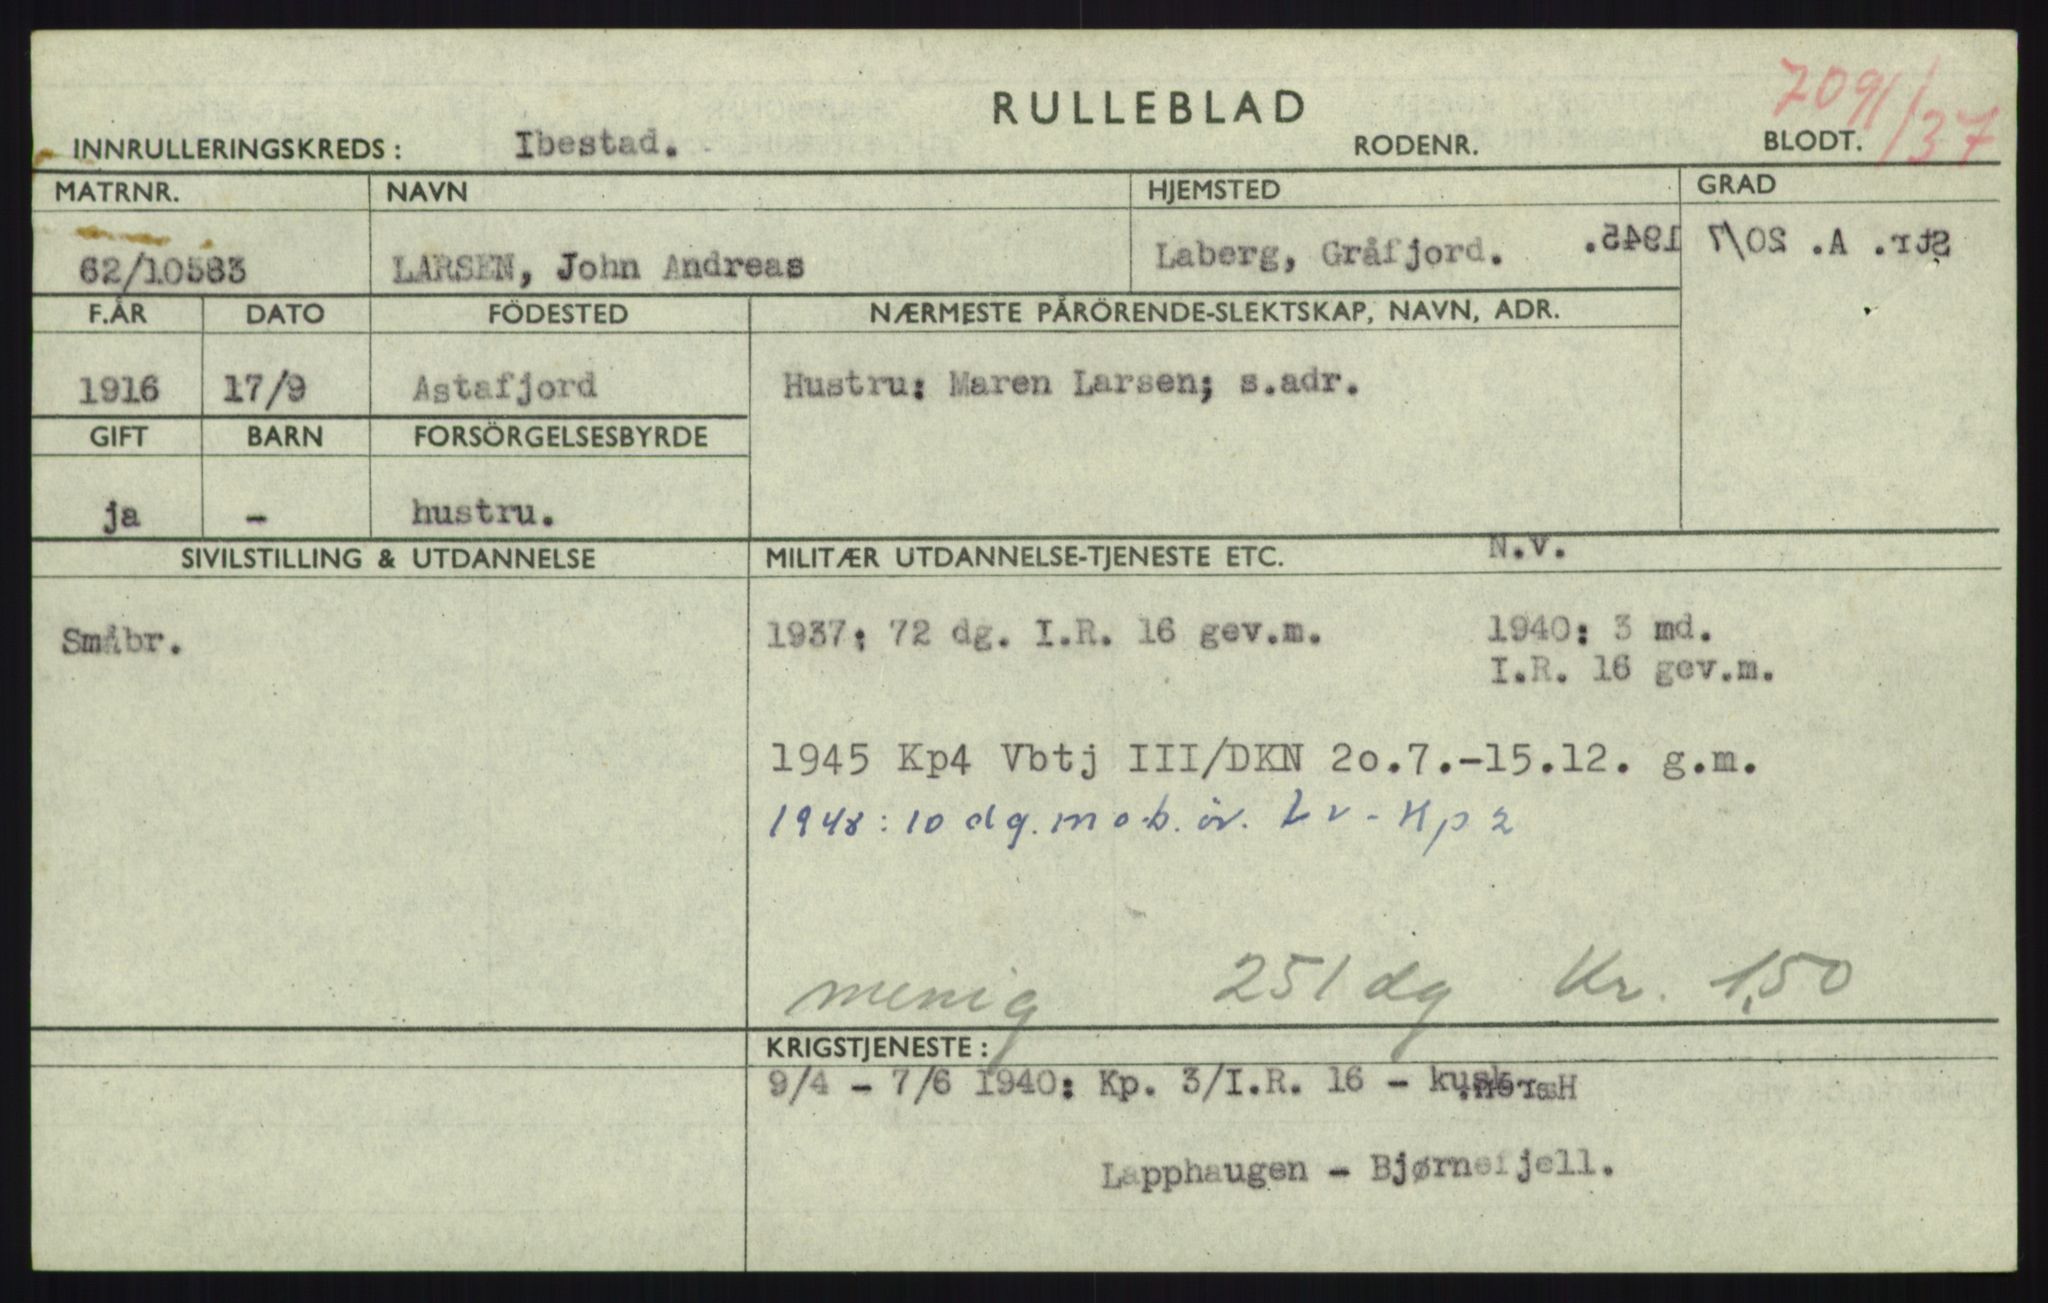 RULLEBLAD
7091/37
INNRULLERINGSKREDS: Ibestad. RODENR. BLODT.
MATRNR. NAVN HJEMSTED GRAD
62/10583 LARSEN, John Andreas Laberg, Gråfjord. Str. A. 20/7 1945.
F.ÅR DATO FÖDESTED NÆRMESTE PÅRÖRENDE-SLEKTSKAP, NAVN, ADR.
1916 17/9 Astafjord Hustru: Maren Larsen; s.adr.
GIFT BARN FORSÖRGELSESBYRDE
ja - hustru.
SIVILSTILLING & UTDANNELSE MILITÆR UTDANNELSE-TJENESTE ETC. N.v.
Småbr. 1937: 72 dg. I.R. 16 gev.m. 1940: 3 md.
I.R. 16 gev.m.
1945 Kp4 Vbtj III/DKN 2o.7.-15.12. g.m.
1948: 10 dg. mob. öv. Lv-Kp 2
menig 251 dg Kr. 1,50
KRIGSTJENESTE:
9/4 - 7/6 1940: Kp. 3/I.R. 16 - kusk. Hæren.
Lapphaugen - Bjørnefjell.